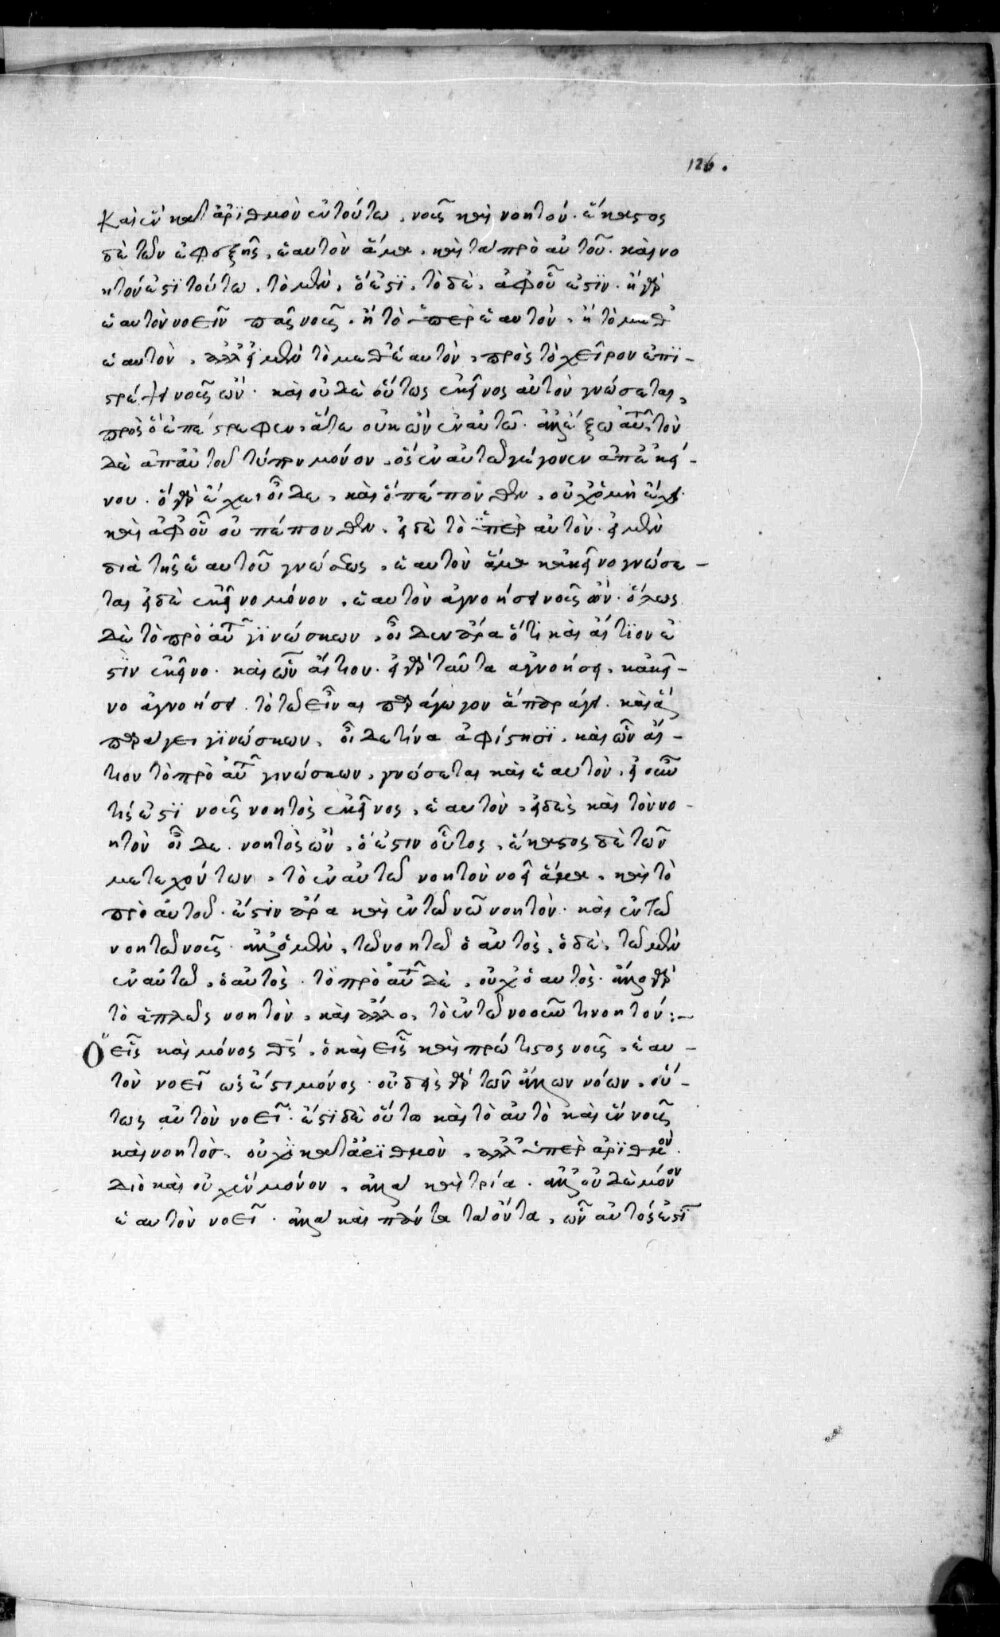 126.
Καὶ ἓν κατ' ἀρϊθμὸν ἐν τούτω, νοῦς καὶ νοητόν. ἕκαστος
δὲ τῶν ἐφεξῆς, ἑαυτὸν ἅμα, καὶ τὰ πρὸ αὐτοῦ. καὶ νο
ητόν ἐστϊ τούτω, τὸ μὲν, ὅ ἐστϊ, τὸ δὲ, ἀφ' οὗ ἐστϊν. ἢ γὰρ
ἑαυτὸν νοεῖν πᾶς νοῦς. ἢ τὸ ὑπὲρ ἑαυτὸν, ἢ τὸ μεθ'
ἑαυτὸν. ἀλλ' εἰ μὲν τὸ μεθ' ἑαυτὸν, πρὸς τὸ χεῖρον ἐπϊ-
στρέψει νοῦς ὢν. καὶ οὐδὲ οὕτως ἐκεῖνος αὐτὸν γνώσεται,
πρὸς ὃ ἐπέστρεφεν, ἅτε οὐκ ὢν ἐν αὐτῶ. ἀλλ' ἔξω αὐτοῦ. τὸν
δὲ ἀπ' αὐτοῦ τύπον μόνον, ὃς ἐν αὐτῶ γέγονεν ἀπ' ἐκεί-
νου. ὃ γὰρ ἔχει οἶδε, καὶ ὃ πέπονθεν, οὐχ ὃ μὴ ἔχει
καὶ ἀφ' οὗ οὐ πέπονθεν. εἰ δὲ τὸ ὑπὲρ αὐτὸν. εἰ μὲν
διὰ τῆς ἑαυτοῦ γνώσεως, ἑαυτὸν ἅμα κἀκεῖνο γνώσε-
ται εἰ δὲ ἐκεῖνο μόνον, ἑαυτὸν ἀγνοήσει νοῦς ὢν. ὅλως
δὲ τὸ πρὸ αὐτοῦ γϊνώσκων, οἶδεν ἄρα ὅτϊ καὶ αἴτϊον ἐ
στϊν ἐκεῖνο. καὶ ὧν αἴτιον. εἰ γὰρ ταῦτα ἀγνοήσει, κἀκεῖ-
νο ἀγνοήσει. τὸ τῶ εἶναι παράγωγον ἃ παράγει. καὶ ἃ
παράγει γϊνώσκων, οἶδε τίνα ἀφίστησϊ, καὶ ὧν αἴ-
τιον τὸ πρὸ αὐτοῦ γινώσκων, γνώσεται καὶ ἑαυτὸν. εἰ οὖν
τίς ἐστϊ νοῦς νοητὸς ἐκεῖνος, ἑαυτὸν, εἰδὼς καὶ τὸν νο-
ητὸν οἶδε. νοητὸς ὢν, ὅ ἐστιν οὗτος, ἕκαστος δὲ τῶν
μετεχόντων, τὸ ἐν αὐτῶ νοητὸν νοεῖ ἅμα, καὶ τὸ
πρὸ αὐτοῦ. ἔστϊν ἄρα καὶ ἐν τῶ νῶ νοητὸν. καὶ ἐν τῶ
νοητῶ νοῦς. ἀλλ' ὁ μὲν, τῶ νοητῶ ὁ αὐτὸς, ὁ δὲ, τῶ μὲν
ἐν αὐτῶ, ὁ αὐτὸς. τὸ πρὸ αὐτοῦ δὲ, οὐχ ὁ αὐτὸς. ἄλλο γὰρ
τὸ ἁπλῶς νοητὸν, καὶ ἄλλο, τὸ ἐν τῶ νοοῦντι νοητόν:-
Ὁ εἷς καὶ μόνος θς, ὁ καὶ εἷς καὶ πρώτιστος νοῦς, ἑαυ-
τὸν νοεῖ ὡς ἔστι μόνος. οὐδεὶς γὰρ τῶν ἄλλων νόων, οὕ-
τως αὐτὸν νοεῖ. ἔστϊ δὲ οὕτω καὶ τὸ αὐτὸ καὶ ἓν νοῦς
καὶ νοητὸς. οὐχϊ κατ' ἀρϊθμὸν, ἀλλ' ὑπὲρ ἀρϊθμὸν.
διὸ καὶ οὐχ ἓν μόνον, ἀλλὰ καὶ τρία. ἀλλ' οὐδὲ μόνον
ἑαυτὸν νοεῖ. ἀλλὰ καὶ πάντα τὰ ὄντα, ὧν αὐτός ἐστϊ